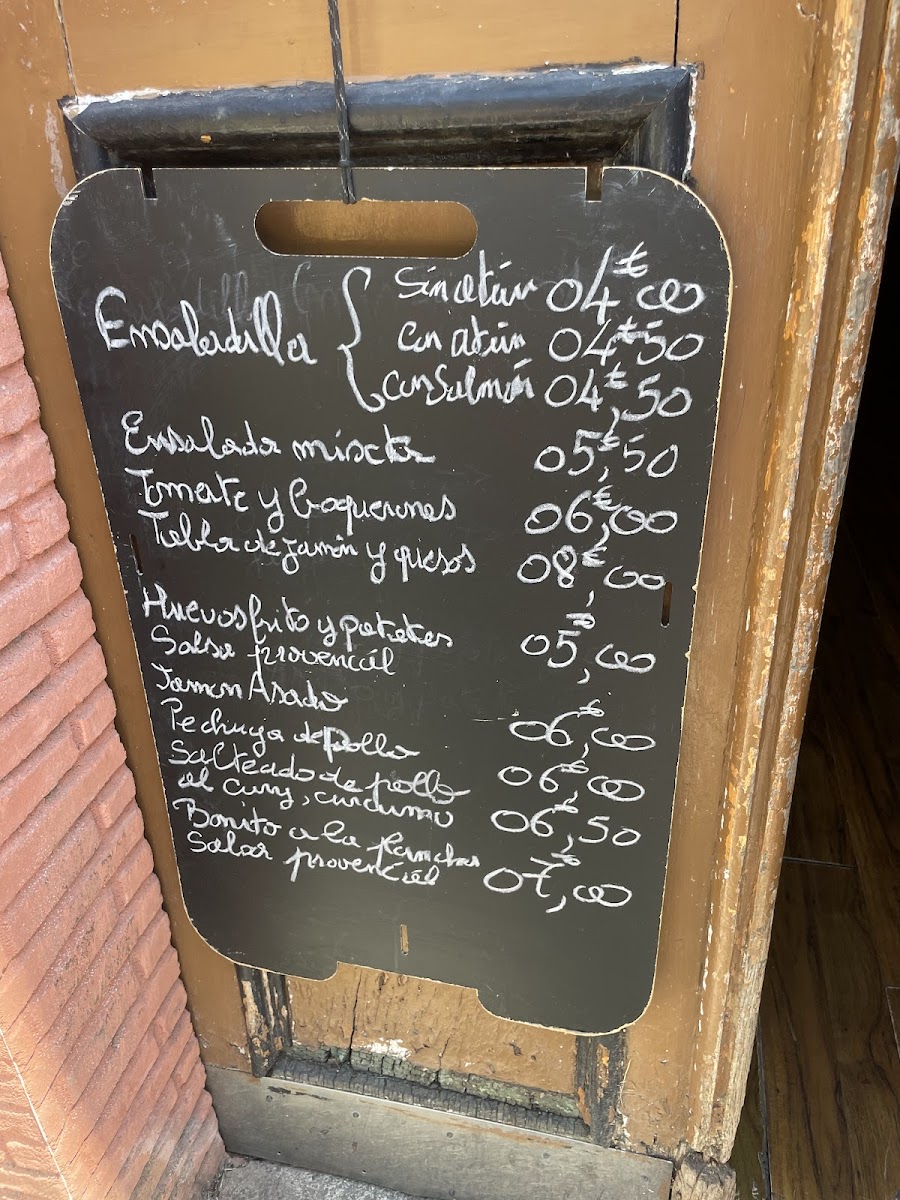 Ensaladilla { Sin atún 04€,00
Con atún 04€,50
Con Salmón 04€,50
Ensalada mixta 05€,50
Tomate y boquerones 06€,00
Tabla de jamón y quesos 08€,00
Huevos frito y patatas
Salsa provenzál 05€,00
Jamon Asado 06€,00
Pechuga de pollo 06€,00
Salteado de pollo
al curry, curcuma 06€,50
Bonito a la plancha
Salsa provenzál 07€,00